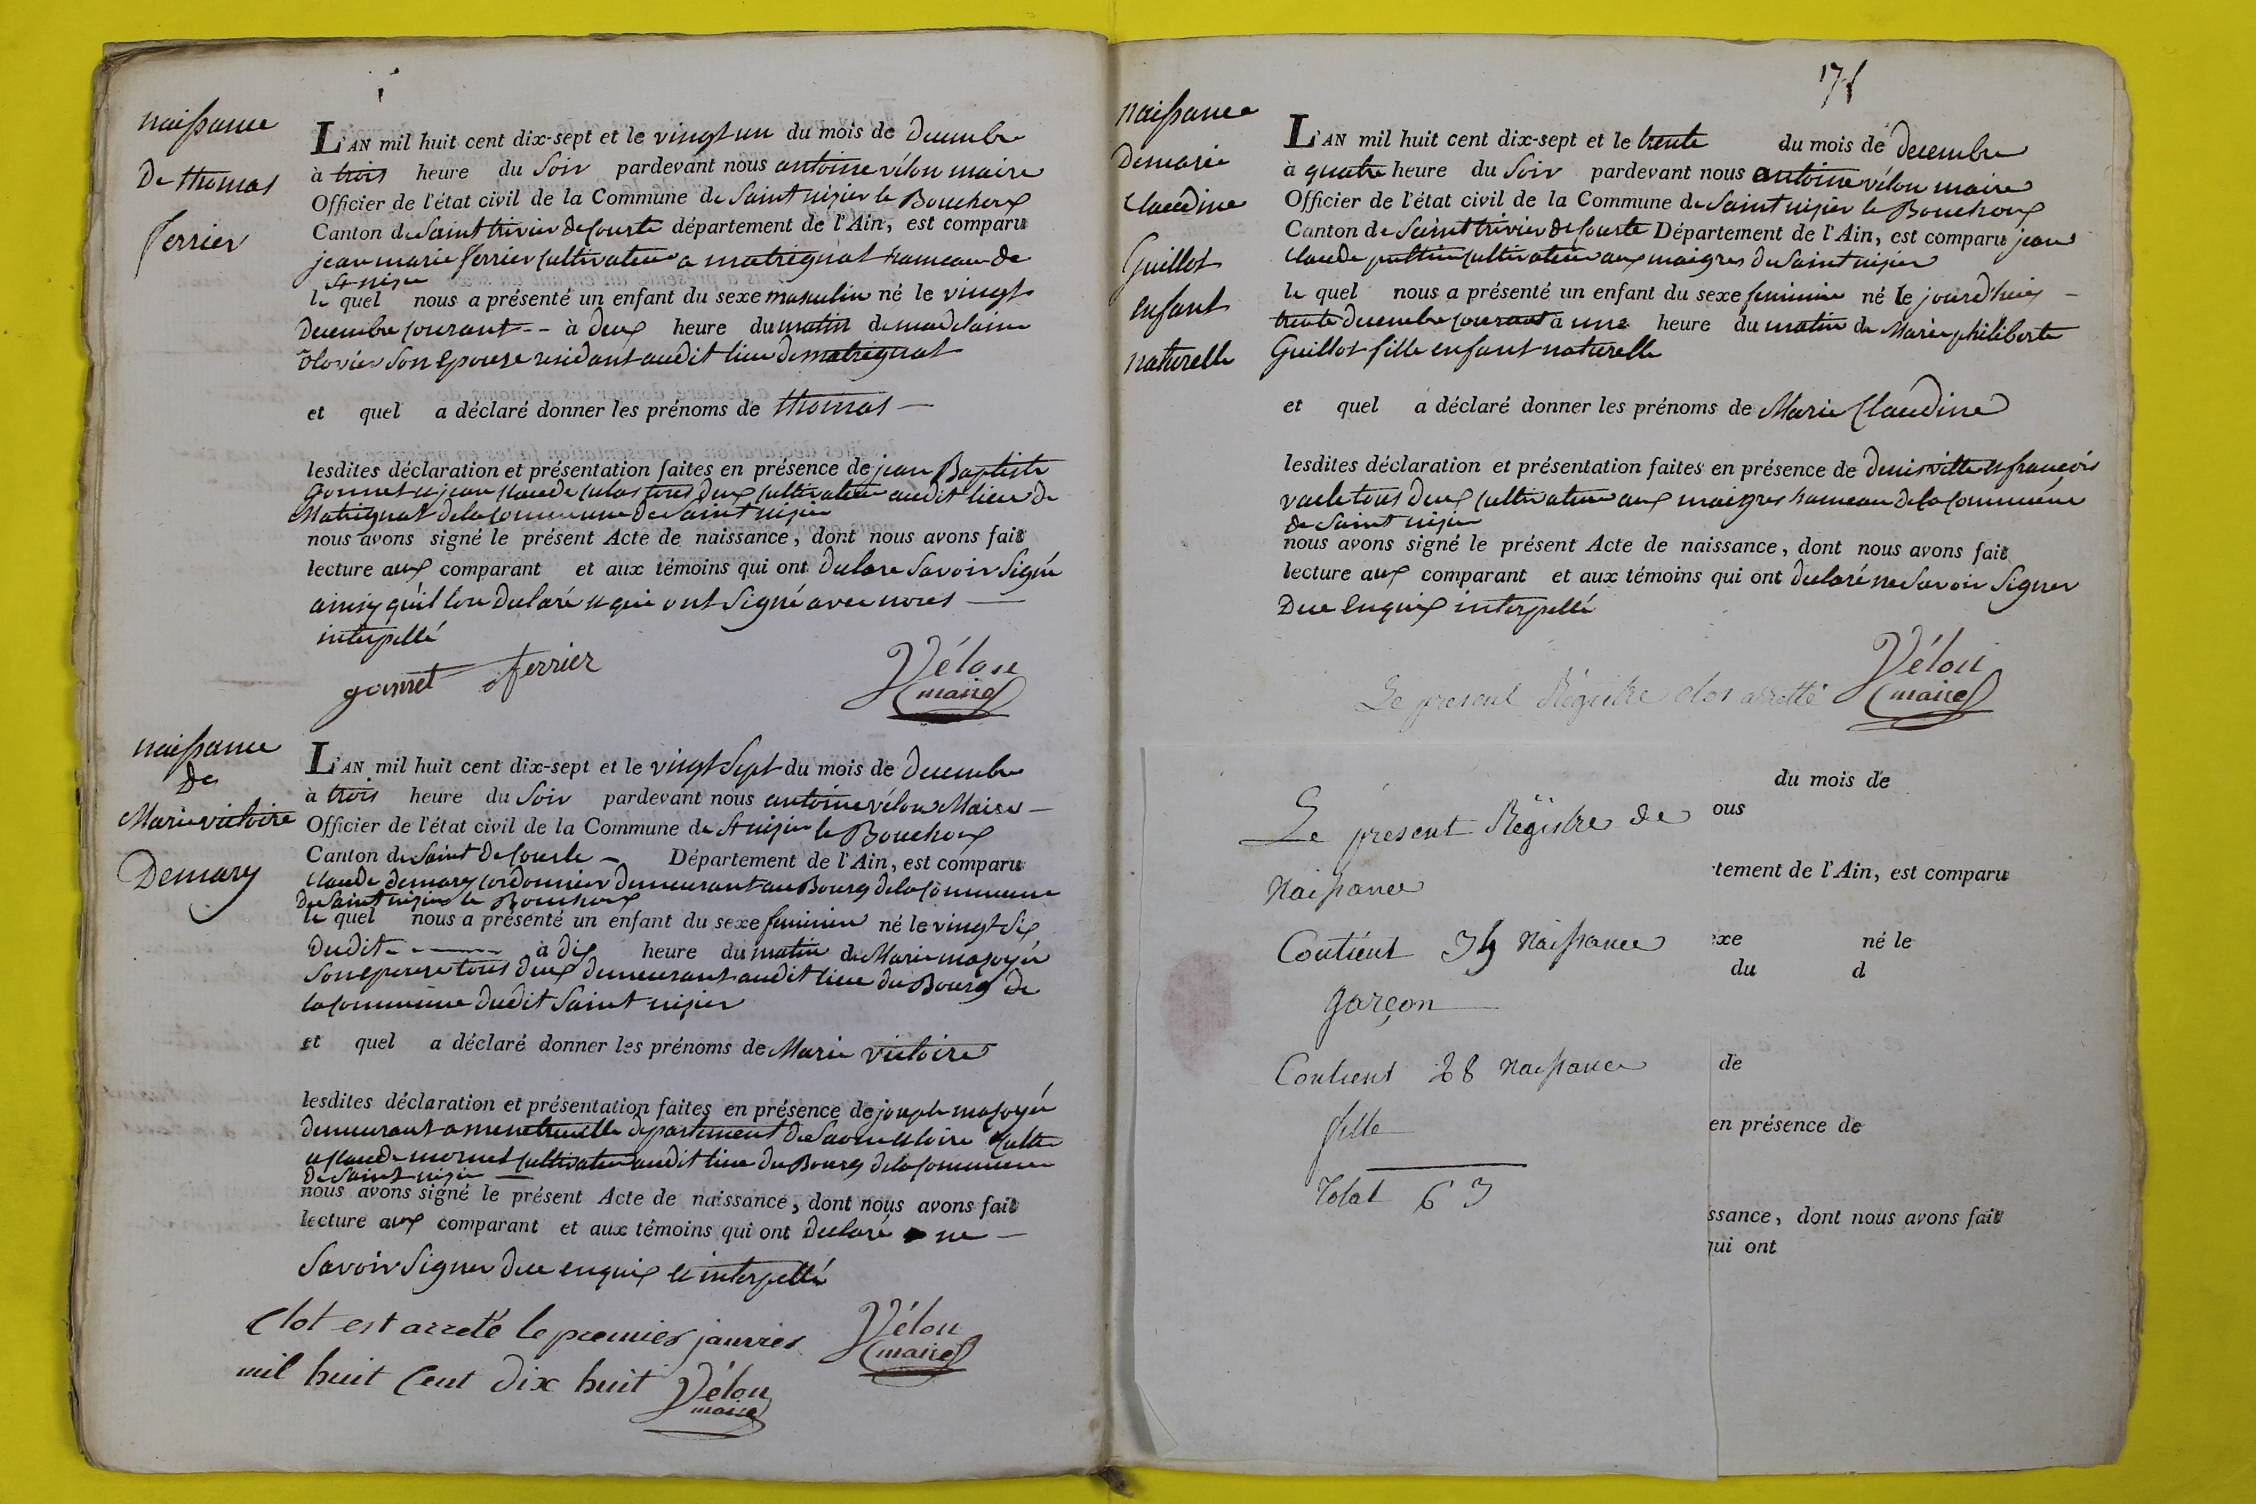 naissance
De thomas
ferrier
L'AN mil huit cent dix-sept et le vingt un du mois de Decembre
à trois heure du Soir pardevant nous antoine vélon maire
Officier de l'état civil de la Commune de Saint nisier le Bouchoux
Canton de Saint trivier de Courte département de l'Ain, est comparu
jean marie ferrier cultivateur a matrignat hameau de
St nisier
le quel nous a présenté un enfant du sexe masculin né le vingt
Decembre courant -- à deux heure du matin de madelaine
son epouse residant audit lieu de matrignat
et quel a déclaré donner les prénoms de thomas —
lesdites déclaration et présentation faites en présence de jean Baptiste
Gonnet et jean claude tous deux cultivateur audit lieu de
Matrignat de la commune de Saint nisier
nous avons signé le présent Acte de naissance, dont nous avons fait
lecture aux comparant et aux témoins qui ont Declare Savoir Signé
ainsy qu'il lon Declaré et qui ont Signé avec nous —
interpellé
gonnet ferrier
Vélon
maire
naissance
De
Marie victoire
Demary
L'AN mil huit cent dix-sept et le vingt Sept du mois de Decembre
à trois heure du Soir pardevant nous antoine vélon Maire —
Officier de l'état civil de la Commune de St nisier le Bouchoux
Canton de Saint De Courte — Département de l'Ain, est comparu
claude demary cordonnier demeurant au Bourg de la commune
De Saint nisier le Bouchoux
le quel nous a présenté un enfant du sexe feminin né le vingt Six
Dudit - —— à dix heure du matin de Marie majoyer
Son epouse tous deux demeurant audit lieu du Bourg De
la commune dudit Saint nisier
et quel a déclaré donner les prénoms de Marie victoire
lesdites déclaration et présentation faites en présence de joseph majoyer
demeurant a menetreuille département de Saone et loire
et claude cultivateur audit lieu du Bourg de la commune
De Saint nisier —
nous avons signé le présent Acte de naissance, dont nous avons fait
lecture aux comparant et aux témoins qui ont Declaré ne —
Savoir Signer Dee enquix et interpellé
Clot est arreté le premier janvier
mil huit Cent Dix huit
Vélon
maire
Vélon
maire
naissance
De marie
claudine
Guillot
enfant
naturelle
L'AN mil huit cent dix-sept et le trente du mois de Decembre
à quatre heure du Soir pardevant nous antoine vélon maire
Officier de l'état civil de la Commune de Saint nisier le Bouchoux
Canton de Saint trivier de Courte Département de l'Ain, est comparu jean
claude cultivateur aux maigres de Saint nisier
le quel nous a présenté un enfant du sexe feminin né le jourd'huy —
trente decembre courant à une heure du matin de Marie philiberte
Guillot fille enfant naturelle
et quel a déclaré donner les prénoms de Marie Claudine
lesdites déclaration et présentation faites en présence de denis vitte et françois
vacle tous deux cultivateur aux maigres hameau de la commune
de Saint nisier
nous avons signé le présent Acte de naissance, dont nous avons fait
lecture aux comparant et aux témoins qui ont declaré ne Savoir Signer
Dee enquix interpellé
Vélon
maire
Le present Régistre clos arretté
Le présent Régistre de
Naissance
Contient 35 Naissance
garçon
Contient 28 Naissance
fille
Total 63
du mois de
ous
tement de l'Ain, est comparu
exe né le
du d
de
en présence de
ssance, dont nous avons fait
qui ont